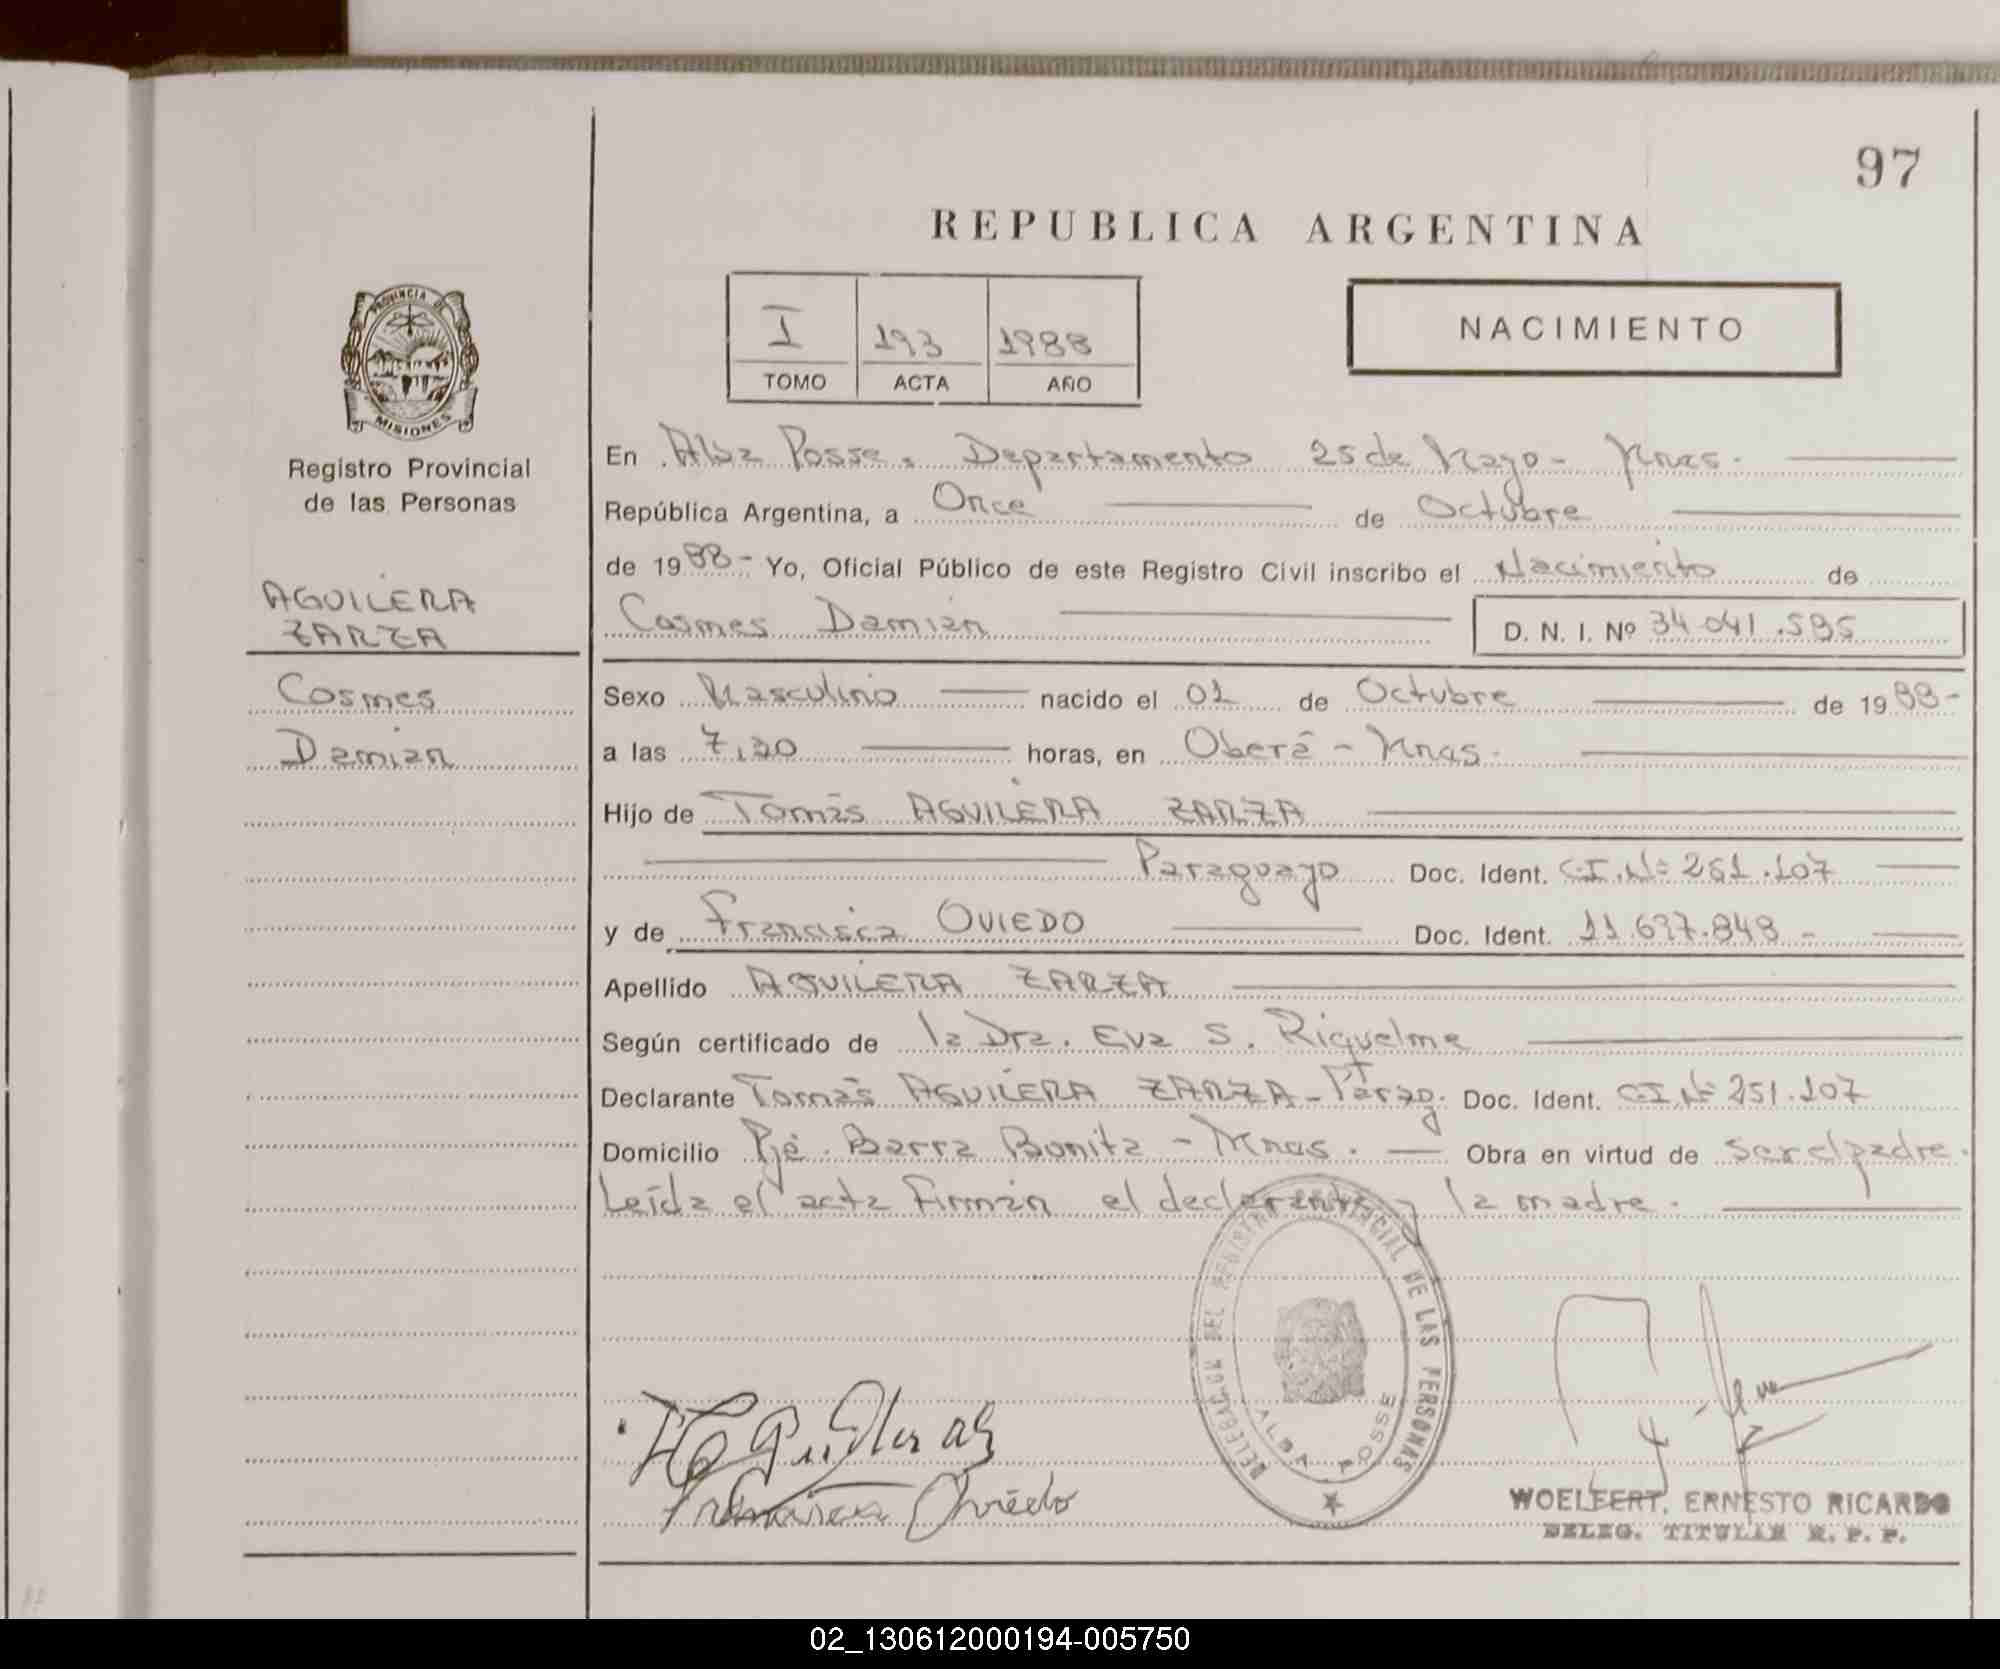 97
REPUBLICA ARGENTINA
I 193 1988
TOMO ACTA AÑO
NACIMIENTO
PROVINCIA DE
MISIONES
Registro Provincial
de las Personas
AGUILERA
ZARZA
Cosmes
Damián
En Alba Posse, Departamento 25 de Mayo - Mnes.
República Argentina, a Once de Octubre
de 1988 - Yo, Oficial Público de este Registro Civil inscribo el Nacimiento de
Cosmes Damián D. N. I. Nº 34.041.595
Sexo Masculino nacido el 01 de Octubre de 1988 -
a las 7,20 horas, en Oberá - Mnes.
Hijo de Tomás AGUILERA ZARZA
Paraguayo Doc. Ident. C.I.Nº 251.107
y de Francisca OVIEDO Doc. Ident. 11.697.848 -
Apellido AGUILERA ZARZA
Según certificado de la Dra. Eva S. Riquelme
Declarante Tomás AGUILERA ZARZA - Parag. Doc. Ident. C.I.Nº 251.107
Domicilio Pje. Barra Bonita - Mnes. Obra en virtud de ser el padre.
Leída el acta firman el declarante y la madre.
DELEGACION DEL REGISTRO PROVINCIAL DE LAS PERSONAS
ALBA POSSE
Francisca Oviedo
WOELFERT, ERNESTO RICARDO
DELEG. TITULAR R. P. P.
02_130612000194-005750